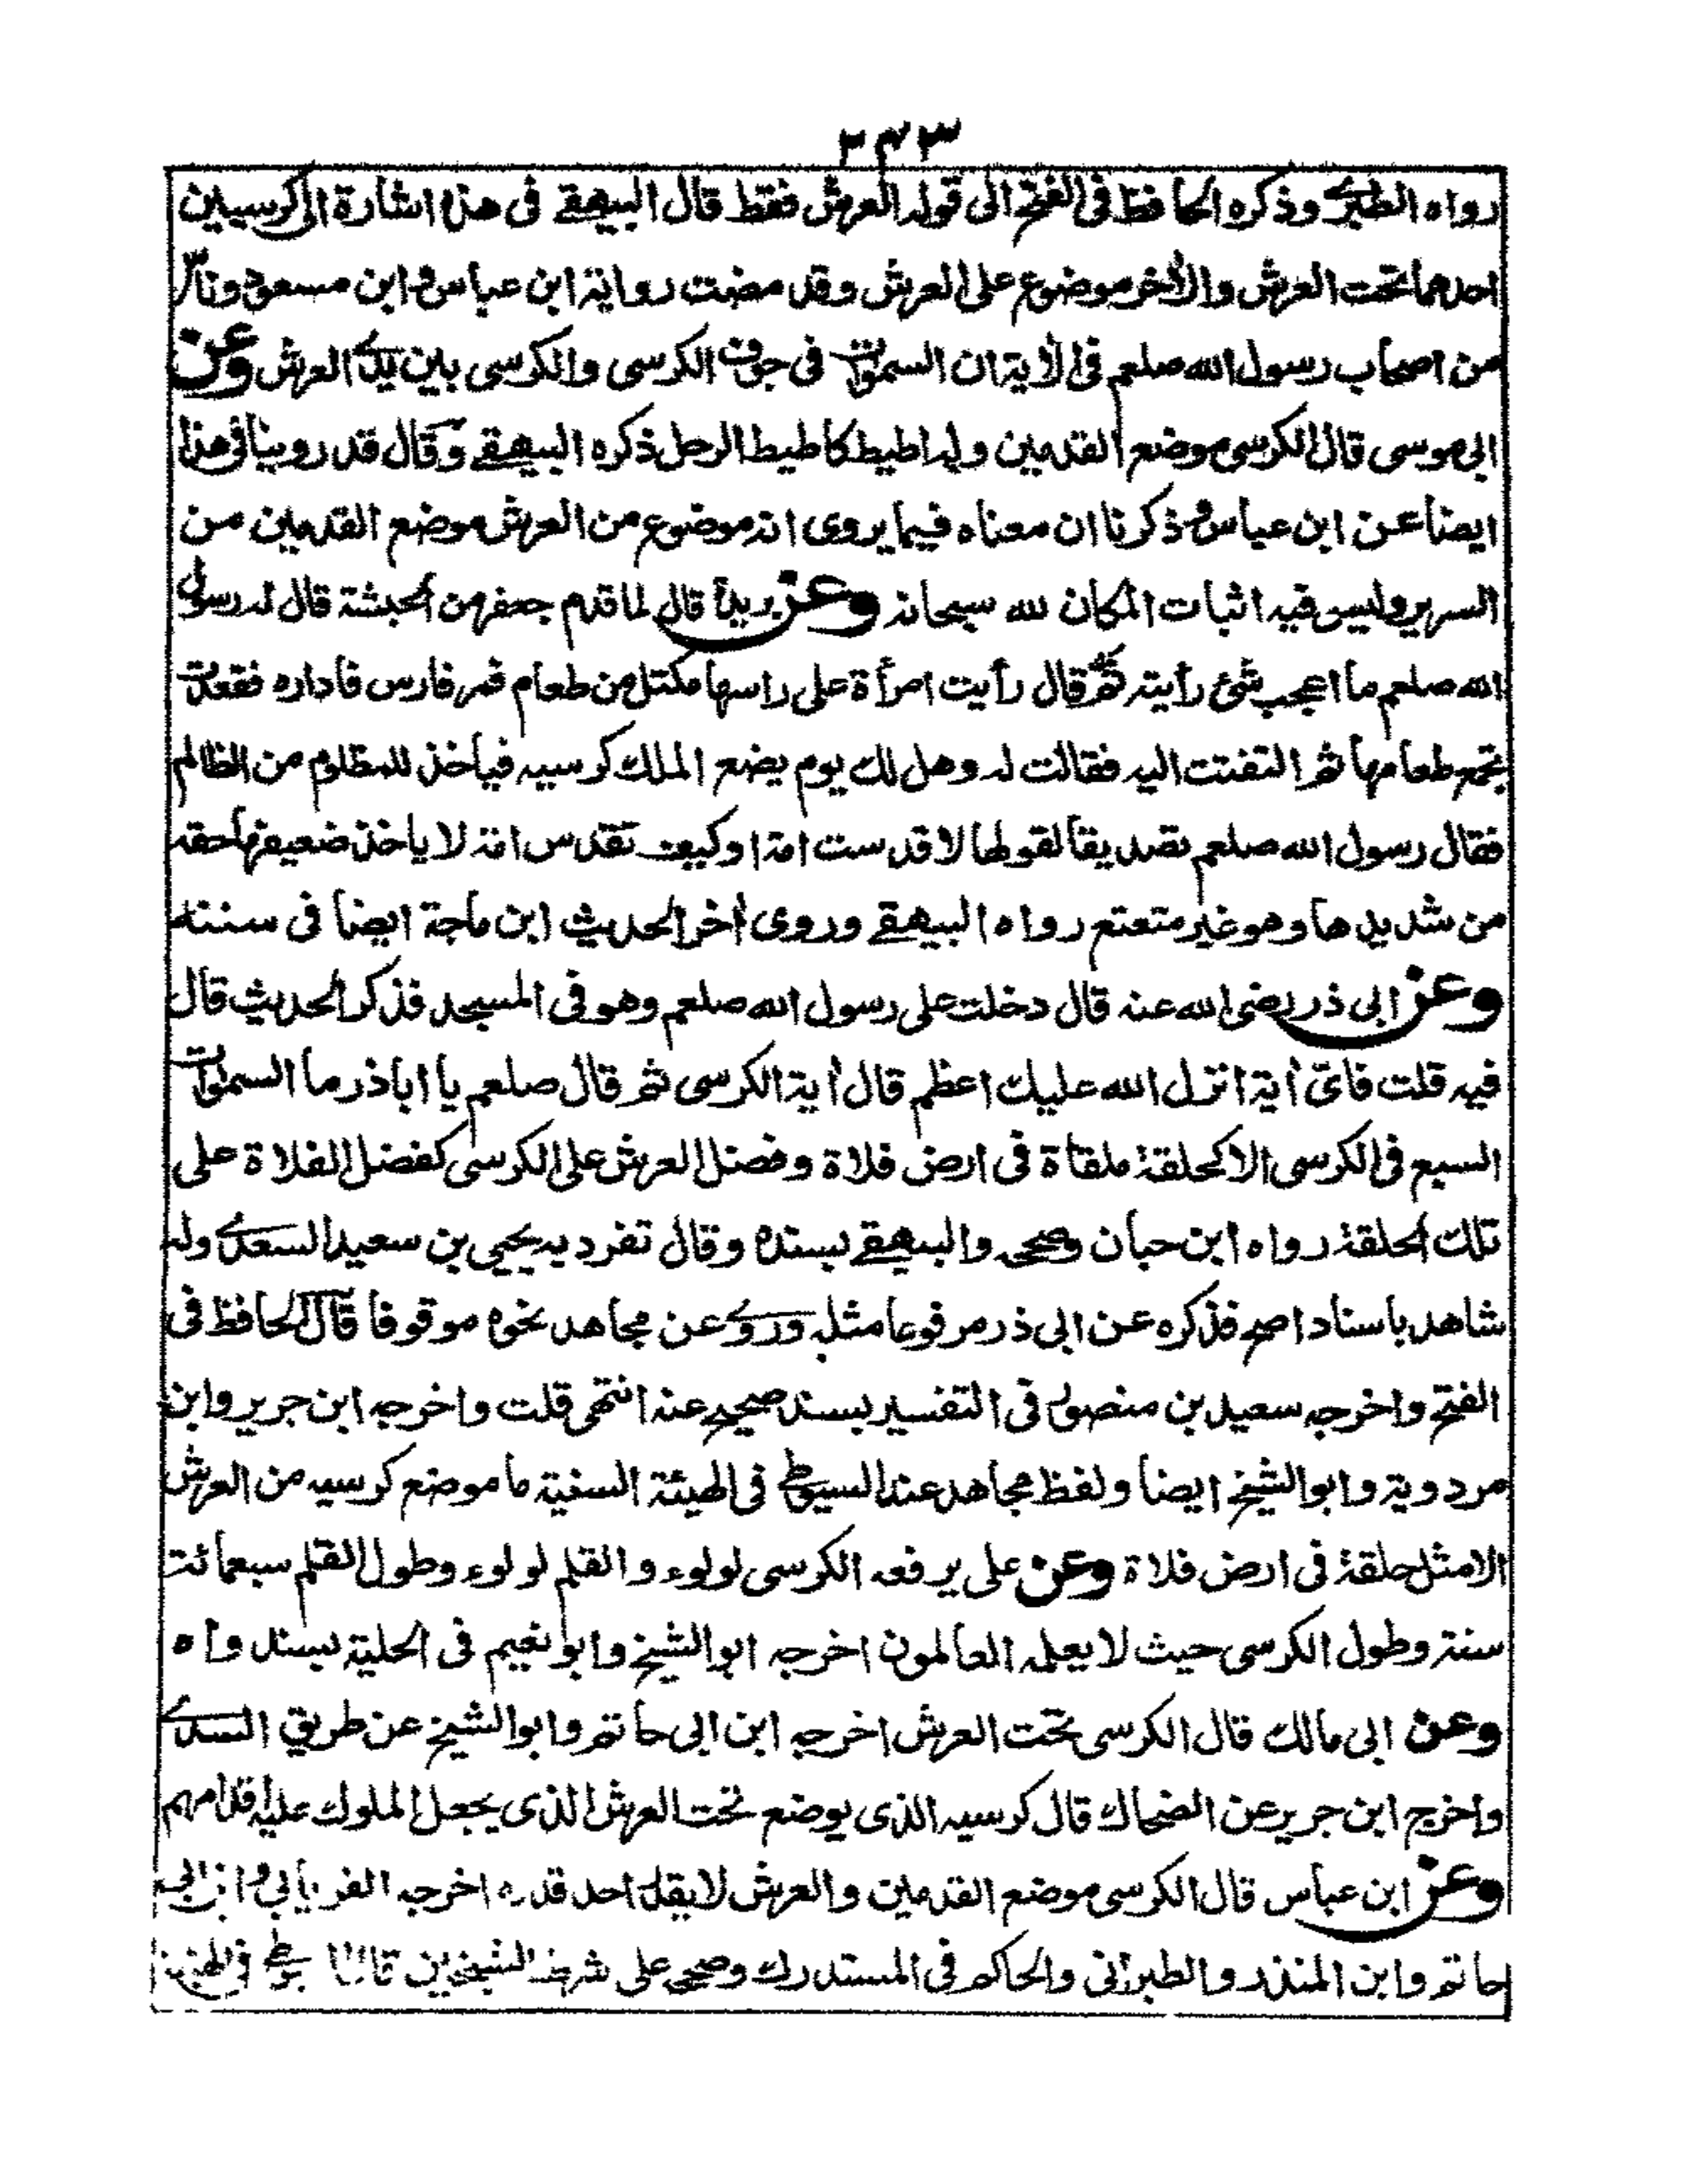 ٢٤٣
رواه الطبرى وذكره الحافظ فى الفتح الى قوله العرش فقط قال البيهقى فى هذا اشارة الى كرسيين
احدهما تحت العرش والأخر موضوع على العرش وقد مضت رواية ابن عباس وابن مسعود وناس
من اصحاب رسول الله صلعم فى الأية ان السموات فى جوف الكرسى والكرسى بين يدى العرش وعن
ابى موسى قال الكرسى موضع القدمين وله اطيط كاطيط الرحل ذكره البيهقى وقال قد روينا فى هذا
ايضا عن ابن عباس وذكرنا ان معناه فيما يروى انه موضوع من العرش موضع القدمين من
السرير وليس فيه اثبات المكان لله سبحانه وعن بريدة قال لما قدم جعفر من الحبشة قال له رسول
الله صلعم ما اعجب شئ رأيته ثم قال رأيت امرأة على راسها مكتل من طعام فمر فارس فاداره فقعدت
تجمع طعامها ثم التفتت اليه فقالت له وهل لك يوم يضع الملك كرسيه فيأخذ للمظلوم من الظالم
فقال رسول الله صلعم تصديقا لقولها لا قدست امة اوكيف تقدس امة لا ياخذ ضعيفها حقه
من شديدها وهو غير متعتع رواه البيهقى وروى أخر الحديث ابن ماجة ايضا فى سننه
وعن ابى ذر رضى الله عنه قال دخلت على رسول الله صلعم وهو فى المسجد فذكر الحديث قال
فيه قلت فاىّ أية انزل الله عليك اعظم قال أية الكرسى ثم قال صلعم يا اباذر ما السموات
السبع فى الكرسى الا كحلقة ملقاة فى ارض فلاة وفضل العرش على الكرسى كفضل الفلاة على
تلك الحلقة رواه ابن حبان وصححه والبيهقى بسنده وقال تفرد به يحيى بن سعيد السعدى وله
شاهد باسناد اصح فذكره عن ابى ذر مرفوعا مثله وروى عن مجاهد نحوه موقوفا قال الحافظ فى
الفتح واخرجه سعيد بن منصور فى التفسير بسند صحيح عنه انتهى قلت واخرجه ابن جرير وابن
مردوية وابو الشيخ ايضا ولفظ مجاهد عند السيوطى فى الهيئة السنية ما موضع كرسيه من العرش
الا مثل حلقة فى ارض فلاة وعن على يرفعه الكرسى لولوء والقلم لولوء وطول القلم سبعمائة
سنة وطول الكرسى حيث لا يعلمه العالمون اخرجه ابو الشيخ وابو نعيم فى الحلية بسند واه
وعن ابى مالك قال الكرسى تحت العرش اخرجه ابن ابى حاتم وابو الشيخ عن طريق السدى
واخرج ابن جرير عن الضحاك قال كرسيه الذى يوضع تحت العرش الذى يجعل الملوك عليه اقدامهم
وعن ابن عباس قال الكرسى موضع القدمين والعرش لا يقدر احد قدره اخرجه الفريابى وابن ابى
حاتم وابن المنذر والطبرانى والحاكم فى المستدرك وصححه على شرط الشيخين